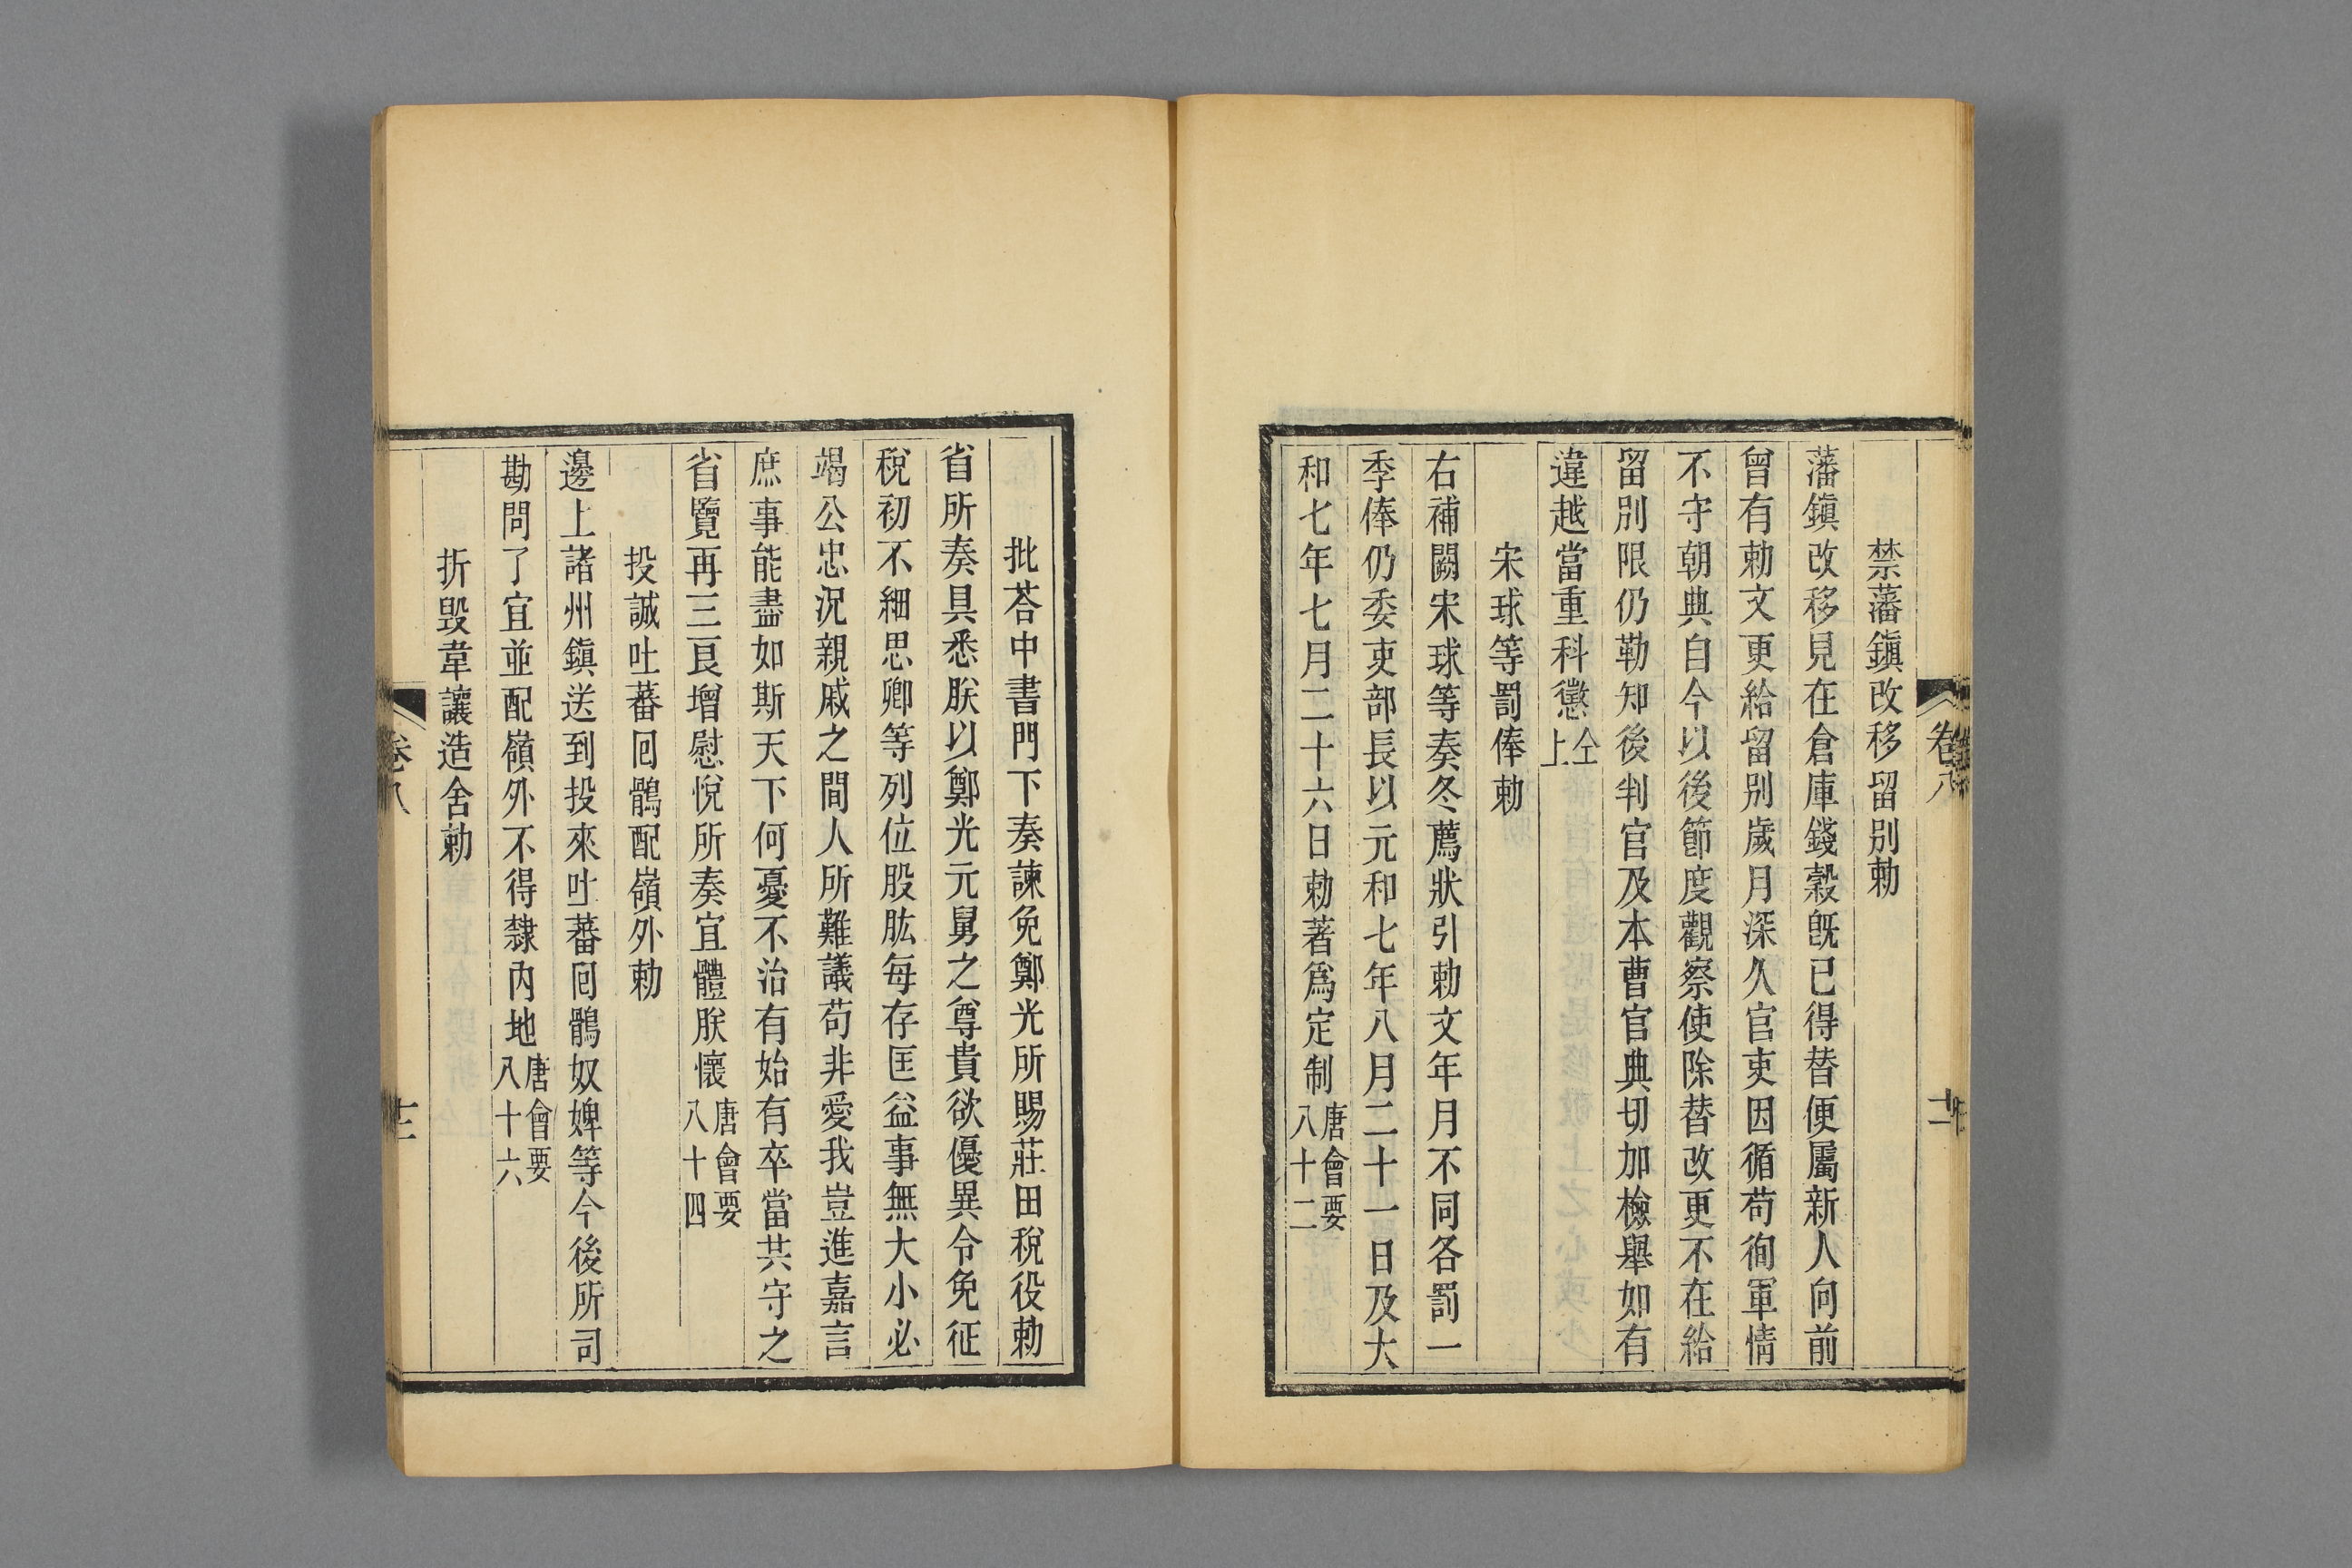 禁藩鎭改移留別勅
藩鎭改移見在倉庫錢穀旣已得替便屬新人向前
曾有勅文更給留別歲月深久官吏因循苟徇軍情
不守朝典自今以後節度觀察使除替改更不在給
留別限仍勒知後判官及本曹官典切加檢舉如有
違越當重科懲仝上
宋球等罰俸勅
右補闕宋球等奏冬薦狀引勅文年月不同各罰一
季俸仍委吏部長以元和七年八月二十一日及大
和七年七月二十六日勅著爲定制唐會要八十二
卷八
十二
批荅中書門下奏諫免鄭光所賜莊田稅役勅
省所奏具悉朕以鄭光元舅之尊貴欲優異令免征
稅初不細思卿等列位股肱每存匡益事無大小必
竭公忠況親戚之間人所難議苟非愛我豈進嘉言
庶事能盡如斯天下何憂不治有始有卒當共守之
省覽再三良增慰悅所奏宜體朕懷唐會要八十四
投誠吐蕃囘鶻配嶺外勅
邊上諸州鎭送到投來吐蕃囘鶻奴婢等今後所司
勘問了宜並配嶺外不得隸內地唐會要八十六
折毀韋讓造舍勅
卷八
十三